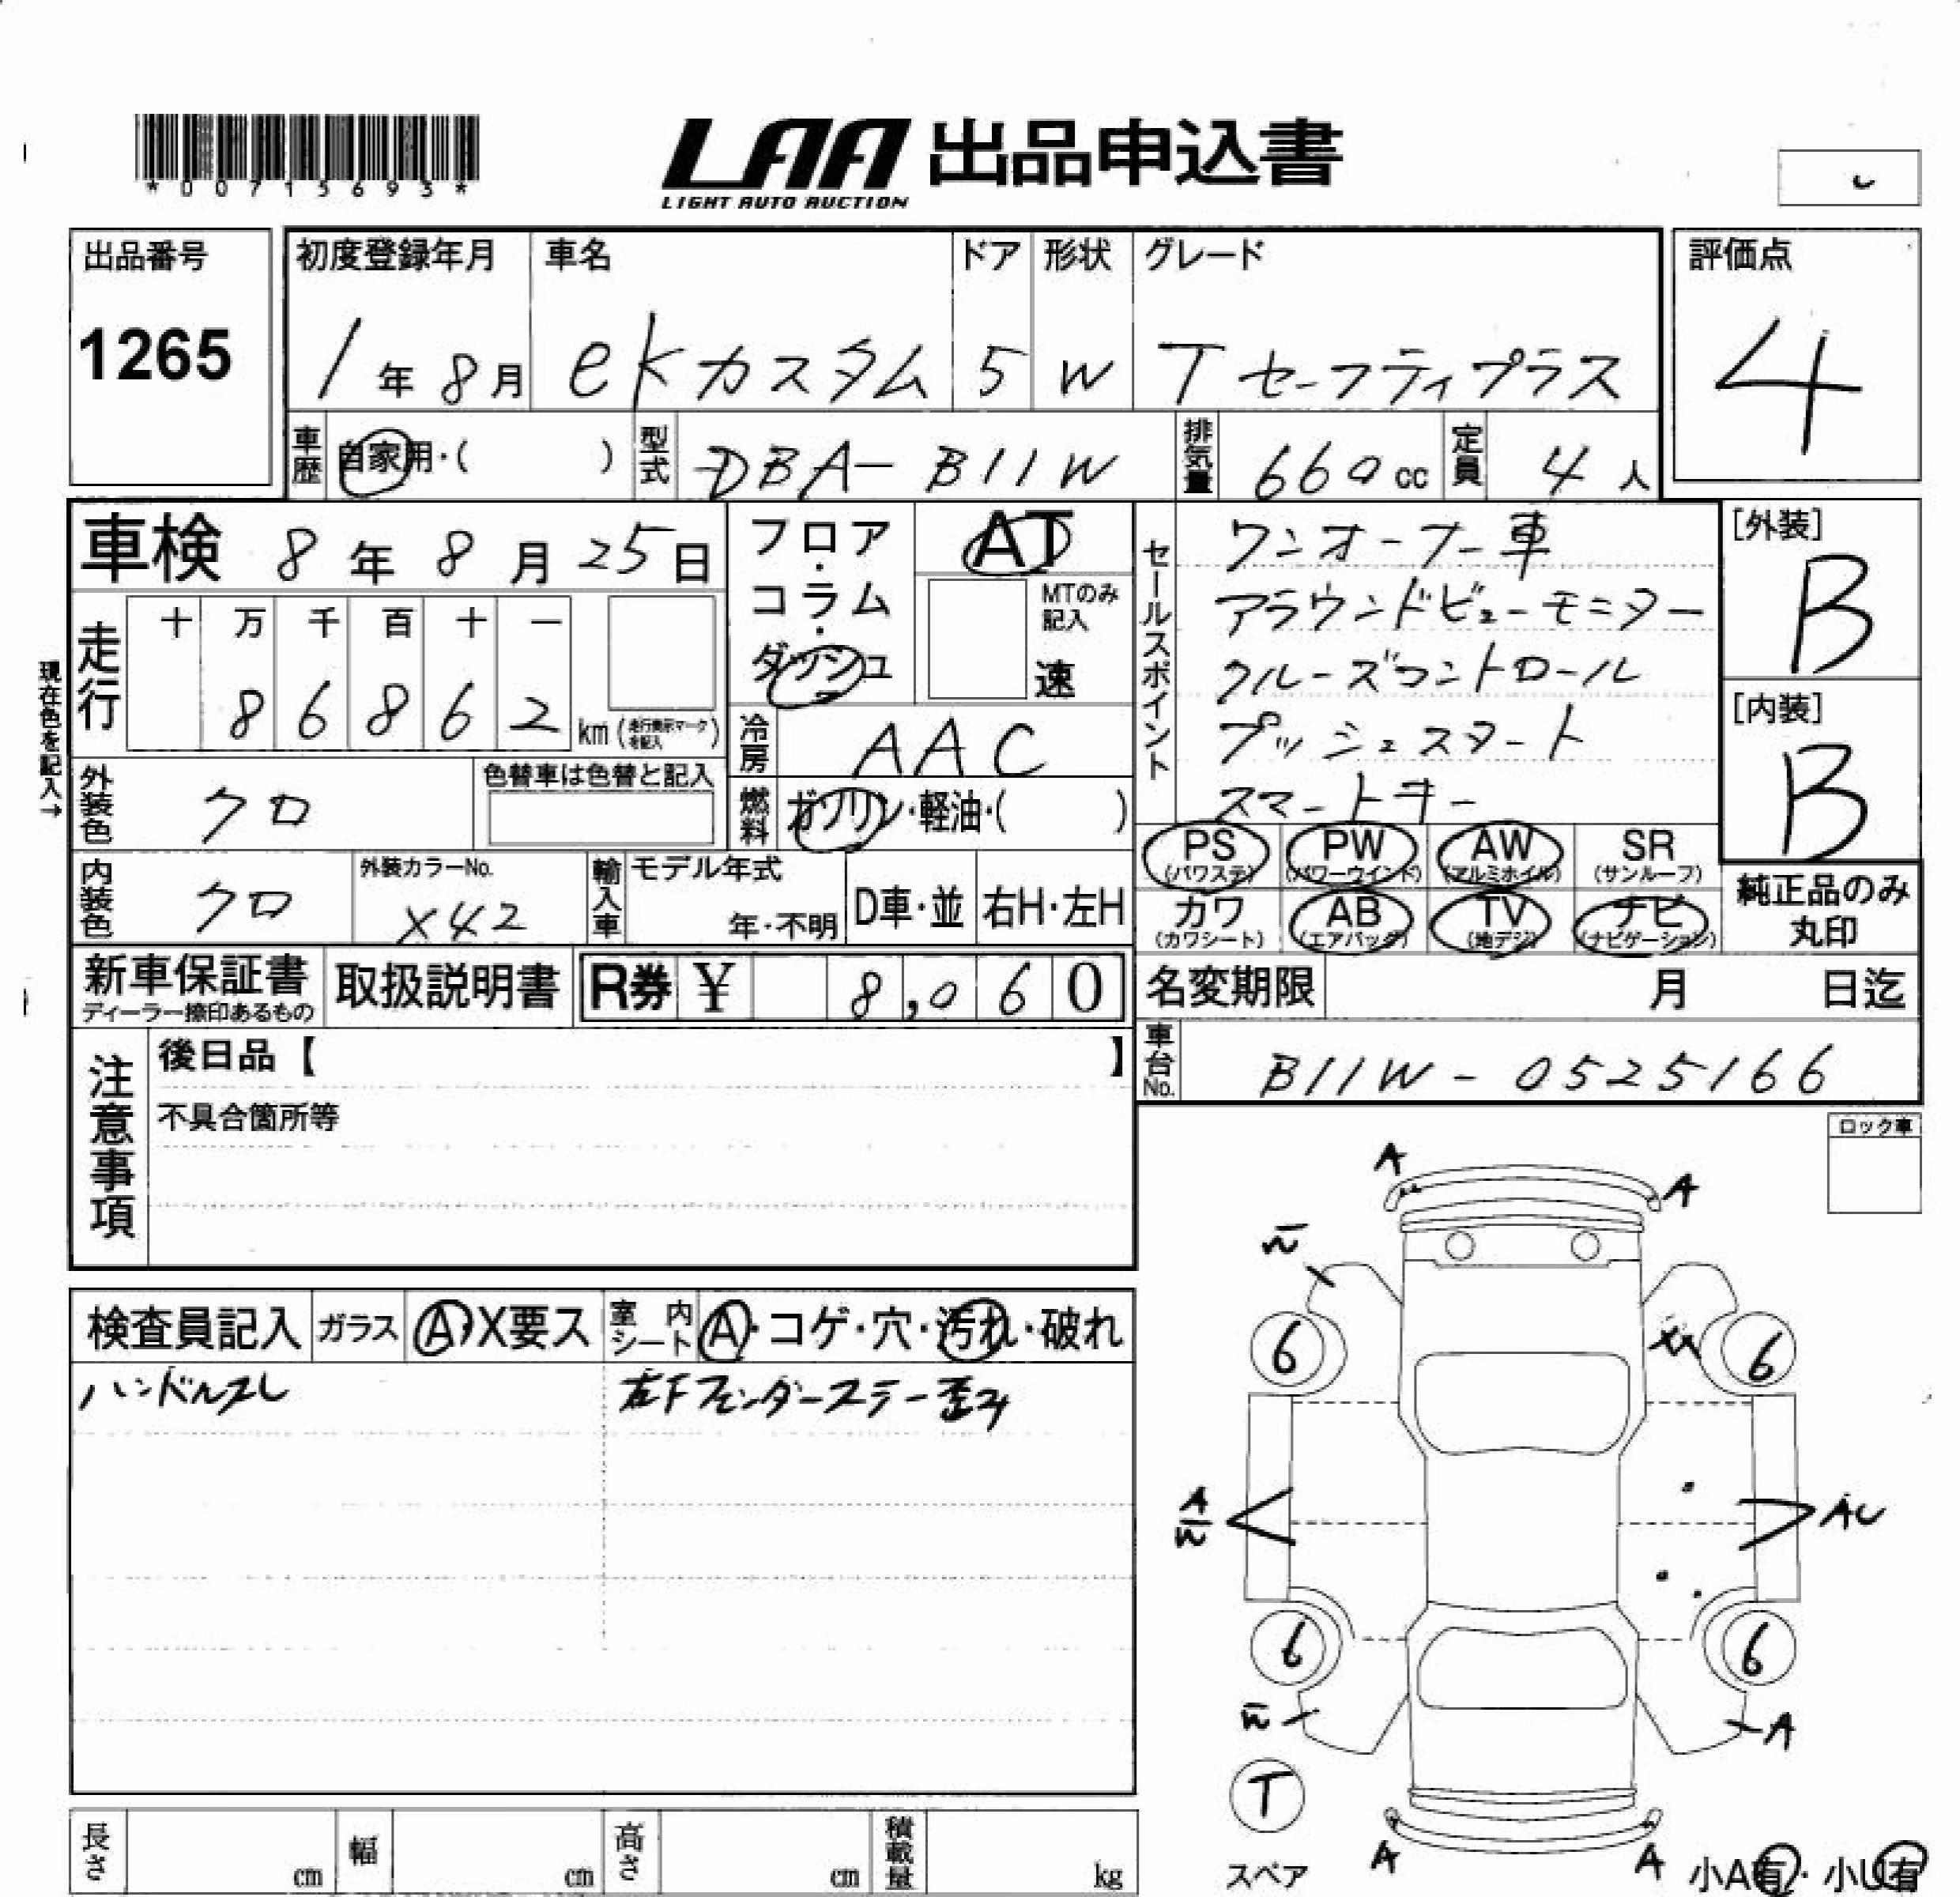 *00715693*
LAA 出品申込書
LIGHT AUTO AUCTION
出品番号
1265
初度登録年月 車名 ドア 形状 グレード
1年8月 ekカスタム 5 W Tセーフティプラス
評価点
4
車歴 自家用・( ) 型式 DBA-B11W 排気量 660cc 定員 4人
車検 8年8月25日
フロア・コラム・ダッシュ
AT
MTのみ記入
速
走行
十 万 千 百 十 一
8 6 8 6 2 km (走行表示マークを記入)
現在色を記入→
冷房 AAC
外装色 クロ
色替車は色替と記入
燃料 ガソリン・軽油・( )
内装色 クロ
外装カラーNo.
X42
輸入車 モデル年式
年・不明 D車・並 右H・左H
セールスポイント
ワンオーナー車
アラウンドビューモニター
クルーズコントロール
プッシュスタート
スマートキー
[外装]
B
[内装]
B
PS (パワステ) PW (パワーウインド) AW (アルミホイル) SR (サンルーフ)
カワ (カワシート) AB (エアバッグ) TV (地デジ) ナビ (ナビゲーション)
純正品のみ丸印
新車保証書
ディーラー捺印あるもの
取扱説明書
R券 ¥ 8,060
名変期限 月 日迄
車台No. B11W-0525166
注意事項
後日品【 】
不具合箇所等
ロック車
検査員記入 ガラス A・X要ス 室内シート A・コゲ・穴・汚れ・破れ
ハンドルスレ
左Fフェンダーステー歪み
A
A
W
6
6
A
W
AU
6
6
W
A
T
スペア
A
A
小A有・小U有
長さ cm 幅 cm 高さ cm 積載量 kg